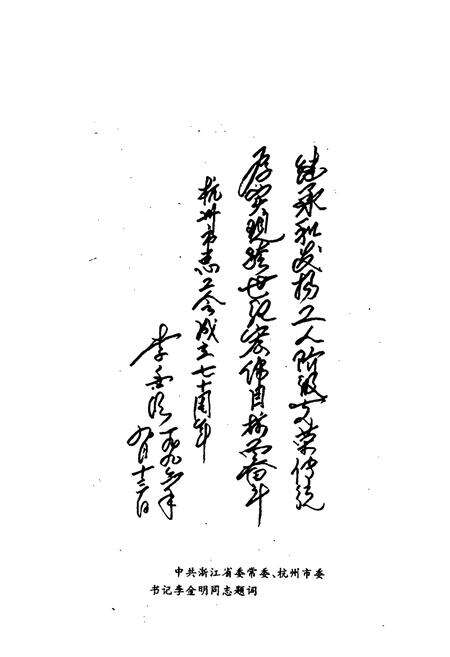 继承和发扬工人阶级光荣传统
为实现跨世纪宏伟目标而奋斗
杭州市总工会成立七十周年
李金明 一九九六年
九月十日
中共浙江省委常委、杭州市委
书记李金明同志题词